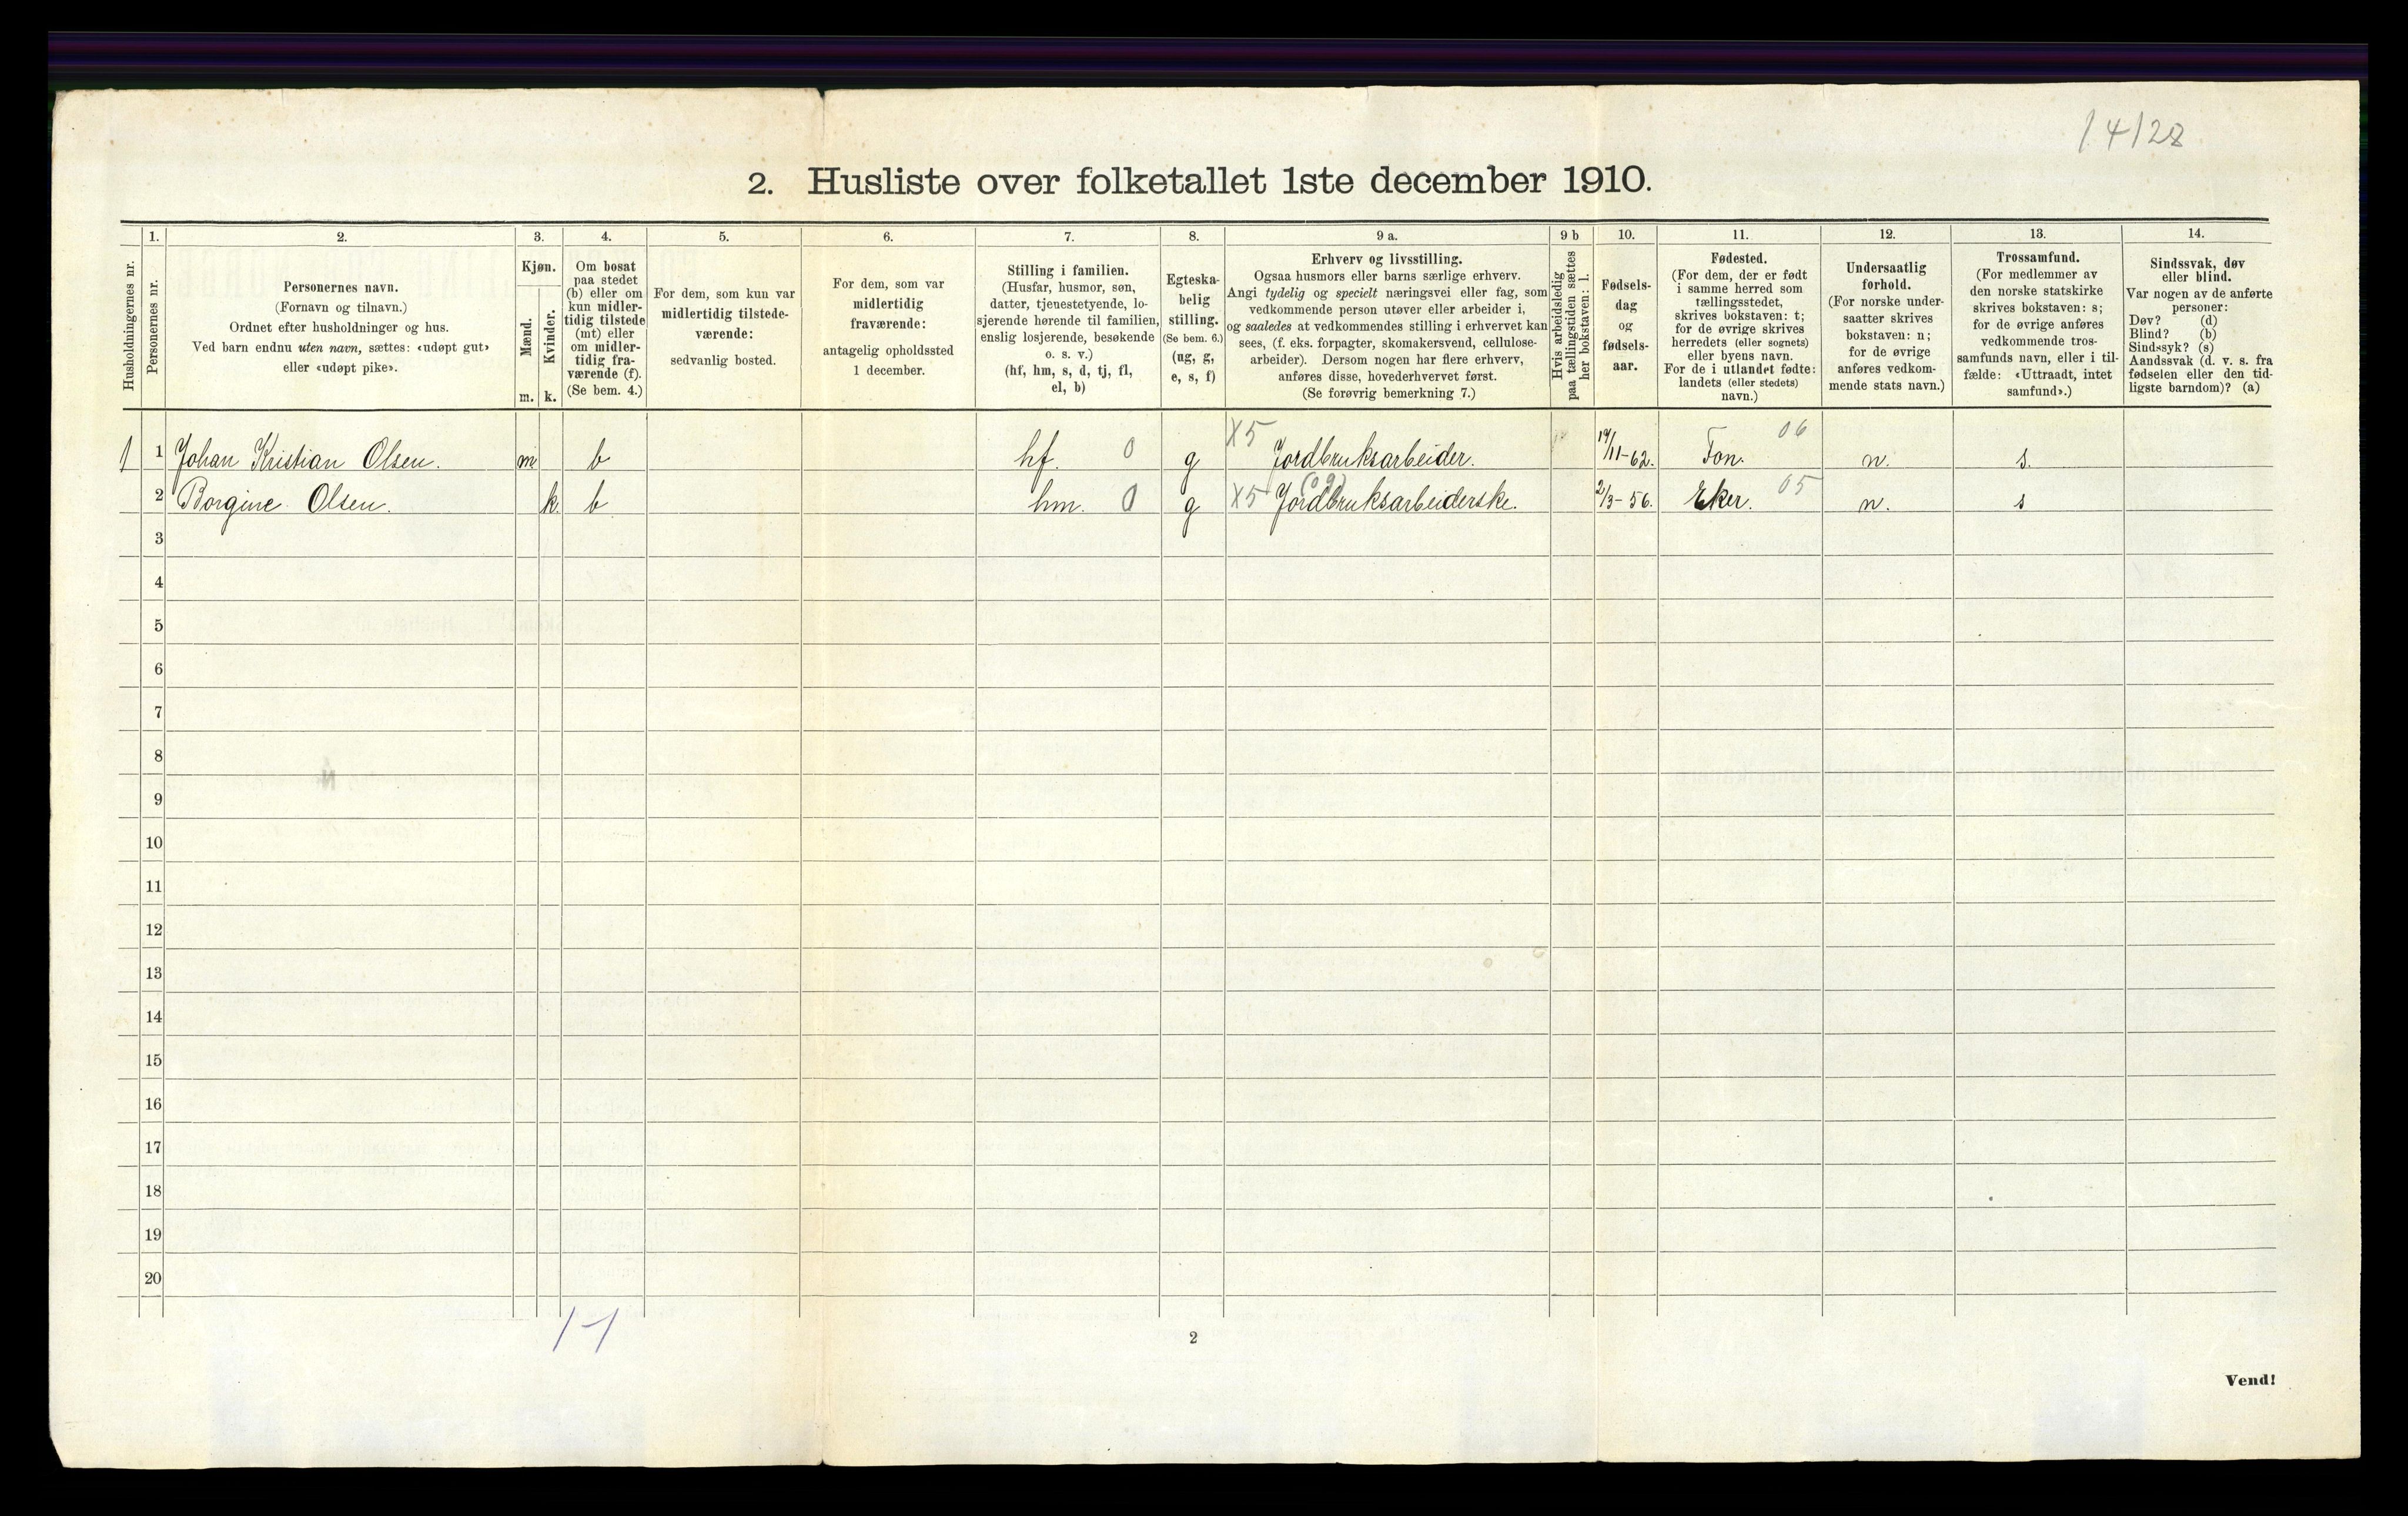 14128
2. Husliste over folketallet 1ste december 1910.
Husholdningernes nr.
1.
Personernes nr.
2.
Personernes navn.
(Fornavn og tilnavn.)
Ordnet efter husholdninger og hus.
Ved barn endnu uten navn, sættes: «udøpt gut»
eller «udøpt pike».
3.
Kjøn.
Mænd.
Kvinder.
m. k.
4.
Om bosat
paa stedet
(b) eller om
kun midler-
tidig tilstede
(mt) eller
om midler-
tidig fra-
værende (f).
(Se bem. 4.)
5.
For dem, som kun var
midlertidig tilstede-
værende:
sedvanlig bosted.
6.
For dem, som var
midlertidig
fraværende:
antagelig opholdssted
1 december.
7.
Stilling i familien.
(Husfar, husmor, søn,
datter, tjenestetyende, lo-
sjerende hørende til familien,
enslig losjerende, besøkende
o. s. v.)
(hf, hm, s, d, tj, fl,
el, b)
8.
Egteska-
belig
stilling.
(Se bem. 6.)
(ug, g,
e, s, f)
9 a.
Erhverv og livsstilling.
Ogsaa husmors eller barns særlige erhverv.
Angi tydelig og specielt næringsvei eller fag, som
vedkommende person utøver eller arbeider i,
og saaledes at vedkommendes stilling i erhvervet kan
sees, (f. eks. forpagter, skomakersvend, cellulose-
arbeider). Dersom nogen har flere erhverv,
anføres disse, hovederhvervet først.
(Se forøvrig bemerkning 7.)
9 b
Hvis arbeidsledig
paa tællingstiden sættes
her bokstaven: l.
10.
Fødsels-
dag
og
fødsels-
aar.
11.
Fødested.
(For dem, der er født
i samme herred som
tællingsstedet,
skrives bokstaven: t;
for de øvrige skrives
herredets (eller sognets)
eller byens navn.
For de i utlandet fødte:
landets (eller stedets)
navn.)
12.
Undersaatlig
forhold.
(For norske under-
saatter skrives
bokstaven: n;
for de øvrige
anføres vedkom-
mende stats navn.)
13.
Trossamfund.
(For medlemmer av
den norske statskirke
skrives bokstaven: s;
for de øvrige anføres
vedkommende tros-
samfunds navn, eller i til-
fælde: «Uttraadt, intet
samfund».)
14.
Sindssvak, døv
eller blind.
Var nogen av de anførte
personer:
Døv? (d)
Blind? (b)
Sindssyk? (s)
Aandssvak (d. v. s. fra
fødselen eller den tid-
ligste barndom)? (a)
1 1 Johan Kristian Olsen. m b hf. 0 g X5 Jordbruksarbeider. 14/11-62. Fon. 06 n. s.
2 Borgine Olsen. k. b hm. 0 g X5 Jordbruksarbeiderske. (09) 2/3-56. Eker. 05 n. s
3
4
5
6
7
8
9
10
11
12
13
14
15
16
17
18
19
20
1-1
2
Vend!